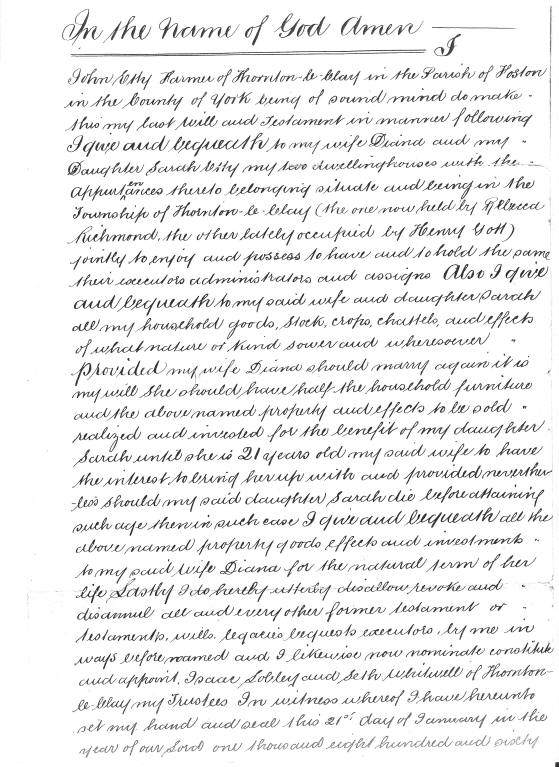 In the Name of God Amen
I
John Etty Farmer of Thornton-le-Clay in the Parish of Foston
in the County of York being of sound mind do make
this my last Will and Testament in manner following
I give and bequeath to my wife Diana and my "
Daughter Sarah Etty my two dwellinghouses with the
appurtenances thereto belonging situate and being in the
Township of Thornton-le-Clay (the one now held by Rebecca
Richmond, the other lately occupied by Henry Gott)
jointly to enjoy and possess to have and to hold the same
their executors administrators and assigns Also I give
and bequeath to my said wife and daughter Sarah
all my household goods, stock, crops, chattels, and effects
of what nature or kind soever and wheresoever "
Provided my wife Diana should marry again it is
my will She should have half the household furniture
and the above named property and effects to be sold "
realized and invested for the benefit of my daughter
Sarah until she is 21 years old my said wife to have
the interest to bring her up with and provided neverthe-
-less should my said daughter Sarah die before attaining
such age then in such case I give and bequeath all the
above named property goods effects and investments "
to my said wife Diana for the natural term of her
life Lastly I do hereby utterly disallow revoke and "
disannul all and every other former testament or "
testaments, wills, legacies bequests executors, by me in
ways before named and I likewise now nominate constitute
and appoint, Isaac and Seth Whitwell of Thornton-
le-Clay my Trustees In witness whereof I have hereunto
set my hand and seal this 21st day of January in the
year of our Lord one thousand eight hundred and sixty